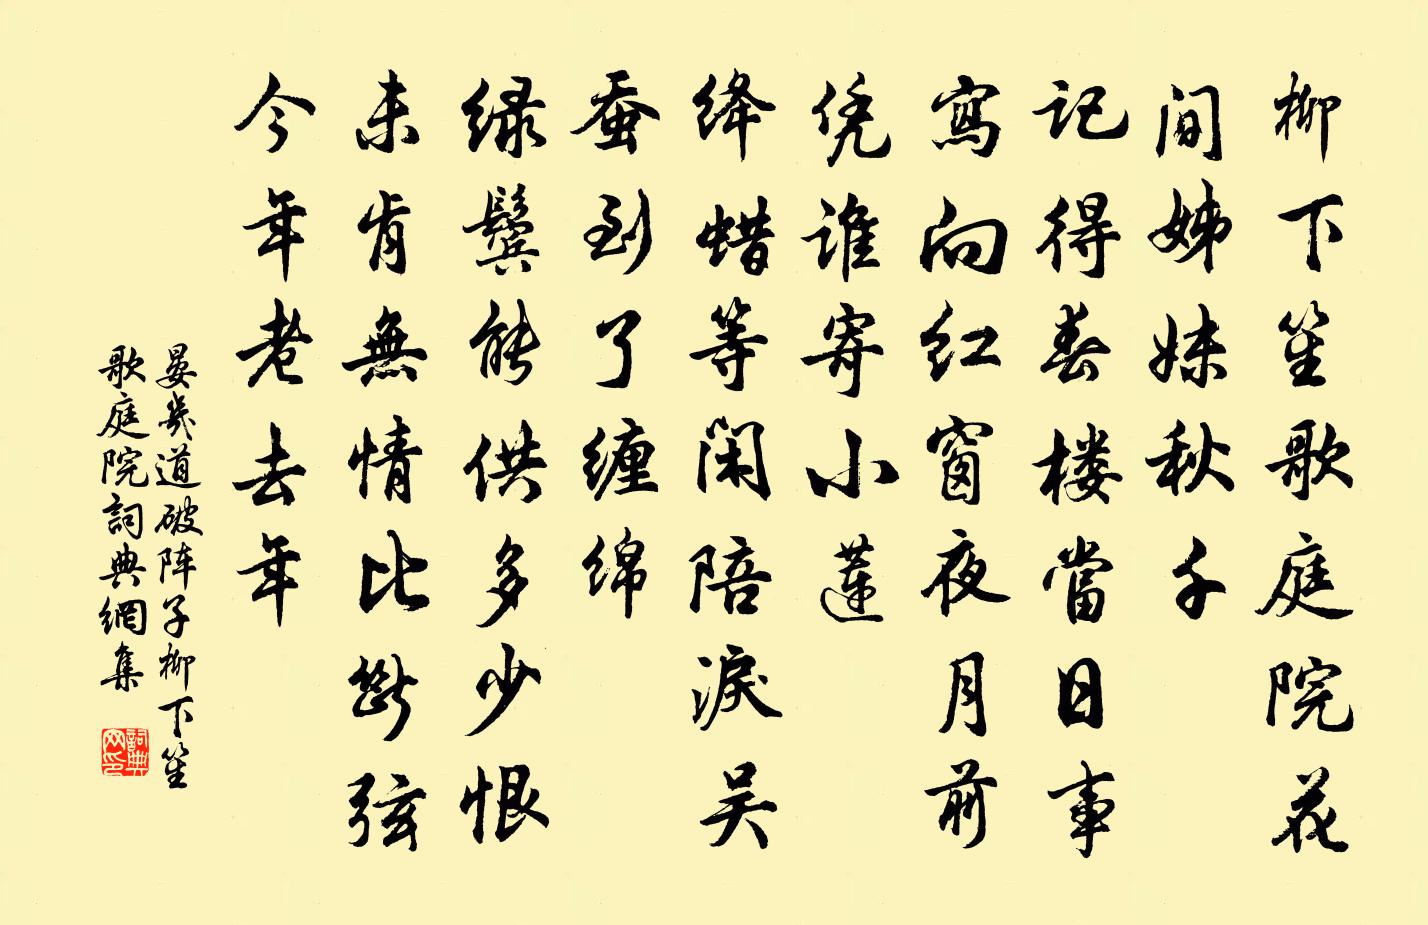 柳下笙歌庭院花
间姊妹秋千
记得春楼當日事
寫向红窗夜月前
凭谁寄小蓮
绛蜡等闲陪淚吴
蚕到了缠绵
绿鬓能供多少恨
未肯無情比斷弦
今年老去年
晏幾道破阵子柳下笙
歌庭院詞典網集
詞典
网印